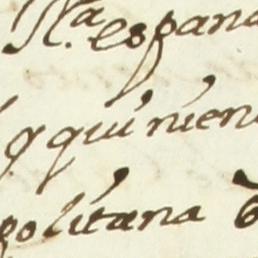 N.ª españa
q quinien
politana